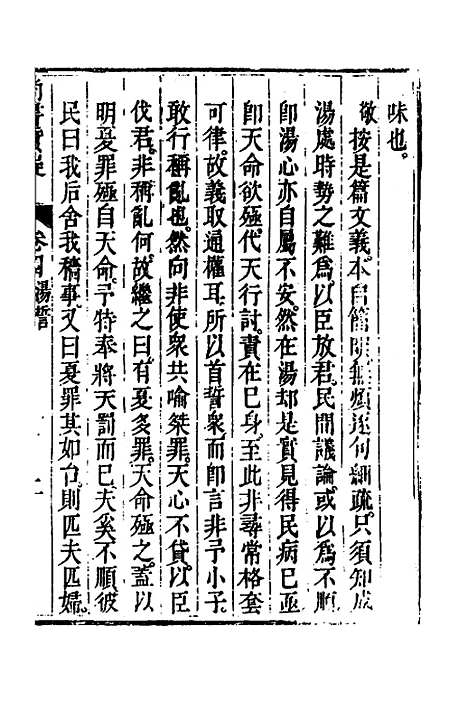 味也。
敬按是篇文義本自簡明無煩逐句細疏只須知成
湯處時勢之難為以臣放君民間議論或以為不順
卽湯心亦自屬不安然在湯却是實見得民病已亟
卽天命欲殛代天行討責在已身至此非尋常格套
可律故義取通權耳所以首誓衆而卽言非予小子
敢行稱亂也然向非使衆共喻桀罪天心不貸以臣
伐君非稱亂何故繼之曰有夏多罪天命殛之蓋以
明夏罪殛自天命予特奉將天罰而已夫奚不順彼
民曰我后舍我穡事又曰夏罪其如台則匹夫匹婦
卷四湯誓